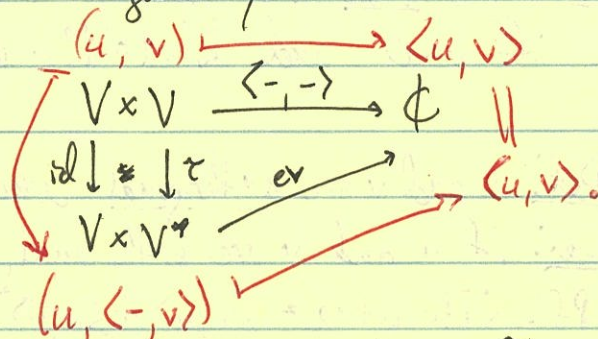 (u, v) ⟼ ⟨u, v⟩
V × V ⟨-,-⟩ ₵ ||
id ↓ × ↓ τ ev ⟨u, v⟩.
V × V*
(u, ⟨-, v⟩)